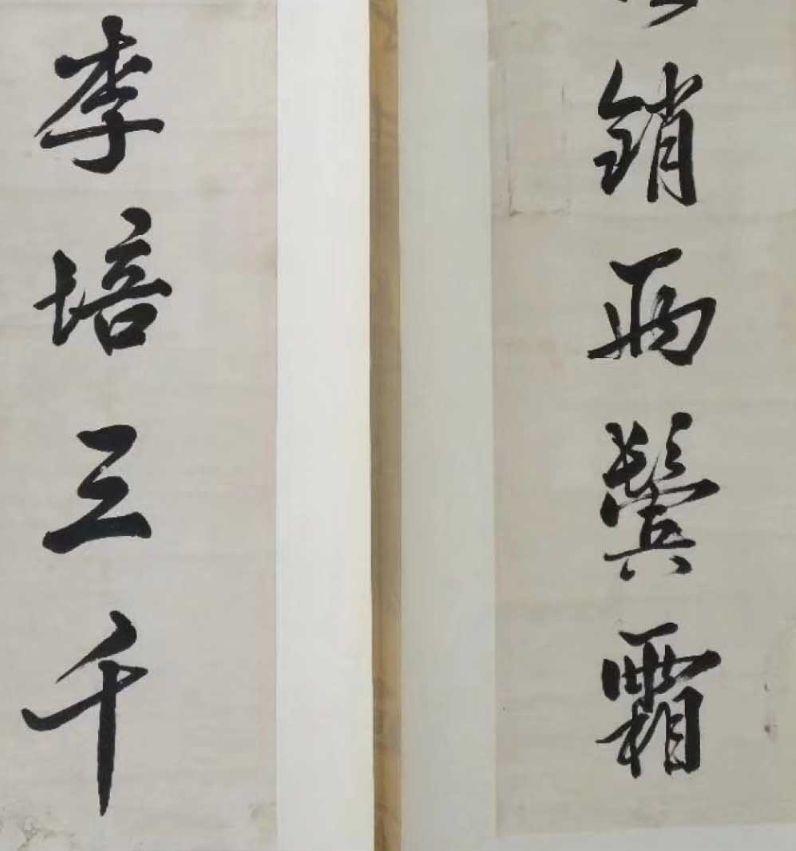 銷兩鬢霜
李培三千